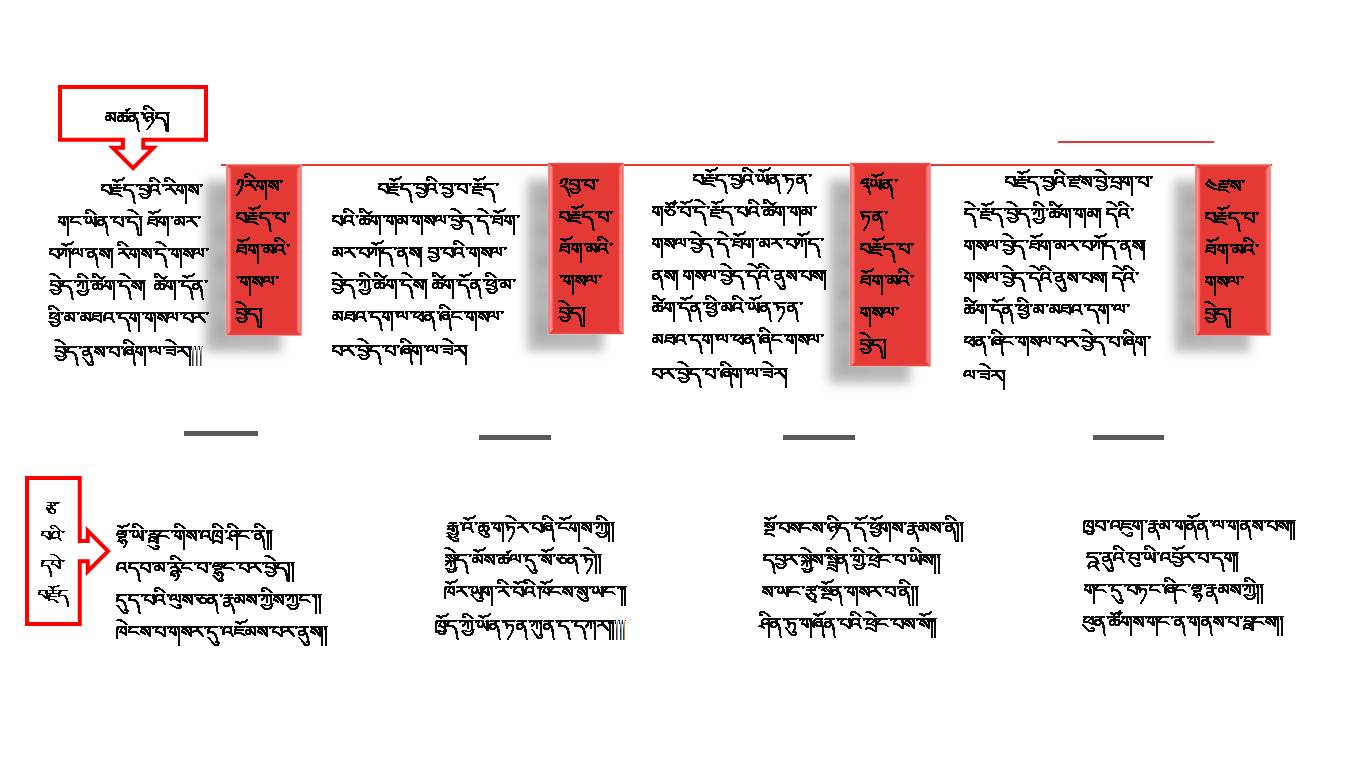 མཚན་ཉིད།
བརྗོད་བྱའི་རིགས་
གང་ཡིན་པ་དེ། ཐོག་མར་
བཀོལ་ནས། རིགས་དེ་གསལ་
བྱེད་ཀྱི་ཚིག་དེས། ཚིག་དོན་
ཕྱི་མ་མཐའ་དག་གསལ་བར་
བྱེད་ནུས་པ་ཞིག་ལ་ཟེར།
༡རིགས་
བརྗོད་པ་
ཐོག་མའི་
གསལ་
བྱེད།
བརྗོད་བྱའི་བྱ་བ་རྗོད་
པའི་ཚིག་གམ་གསལ་བྱེད་དེ་ཐོག་
མར་བཀོད་ནས། བྱ་བའི་གསལ་
བྱེད་ཀྱི་ཚིག་དེས། ཚིག་དོན་ཕྱི་མ་
མཐའ་དག་ལ་ཕན་ཞིང་གསལ་
བར་བྱེད་པ་ཞིག་ལ་ཟེར།
༢བྱ་བ་
བརྗོད་པ་
ཐོག་མའི་
གསལ་
བྱེད།
བརྗོད་བྱའི་ཡོན་ཏན་
གཙོ་བོ་དེ་རྗོད་པའི་ཚིག་གམ་
གསལ་བྱེད་དེ་ཐོག་མར་བཀོད་
ནས། གསལ་བྱེད་དེའི་ནུས་པས།
ཚིག་དོན་ཕྱི་མའི་ཡོན་ཏན་
མཐའ་དག་ལ་ཕན་ཞིང་གསལ་
བར་བྱེད་པ་ཞིག་ལ་ཟེར།
༣ཡོན་
ཏན་
བརྗོད་པ་
ཐོག་མའི་
གསལ་
བྱེད།
བརྗོད་བྱའི་རྫས་བྱེ་བྲག་པ་
དེ་རྗོད་བྱེད་ཀྱི་ཚིག་གམ། དེའི་
གསལ་བྱེད་ཐོག་མར་བཀོད་ནས།
གསལ་བྱེད་དེའི་ནུས་པས། དེའི་
ཚིག་དོན་ཕྱི་མ་མཐའ་དག་ལ་
ཕན་ཞིང་གསལ་བར་བྱེད་པ་ཞིག་
ལ་ཟེར།
༤རྫས་
བརྗོད་པ་
ཐོག་མའི་
གསལ་
བྱེད།
རྩ་
བའི་
དཔེ་
བརྗོད
ལྷོ་ཡི་རླུང་གིས་འཁྲི་ཤིང་ནི༎
འདབ་མ་རྙིང་པ་ལྷུང་བར་བྱེད༎
དུད་པའི་ལུས་ཅན་རྣམས་ཀྱིས་ཀྱང་༎
ཁེངས་པ་གསར་དུ་འཇོམས་པར་ནུས༎
རྒྱ་འོ་ཆུ་གཏེར་བཞི་ངོགས་ཀྱི༎
སྐྱེད་མོས་ཚལ་དུ་སོ་ཅན་ཏེ༎
ཁོར་ཡུག་རི་བོའི་ཁོངས་སུ་ཡང་༎
ཁྱོད་ཀྱི་ཡོན་ཏན་ཀུན་ད་དཀར༎
སྔོ་བསངས་ཉིད་དོ་ཕྱོགས་རྣམས་ནི༎
དབྱར་སྐྱེས་སྤྲིན་གྱི་ཕྲེང་བ་ཡིས༎
ས་ཡང་རྩྭ་སྔོན་གསར་པ་ནི༎
ཤིན་ཏུ་གཞོན་པའི་ཕྲེང་བས་སོ༎
ཁྱབ་འཇུག་རྣམ་གནོན་ལ་གནས་པས༎
དཱ་ནུའི་བུ་ཡི་འབྱོར་པ་དག༎
གང་དུ་བཏང་ཞིང་ལྷ་རྣམས་ཀྱི༎
ཕུན་ཚོགས་གང་ན་གནས་པ་བླངས༎